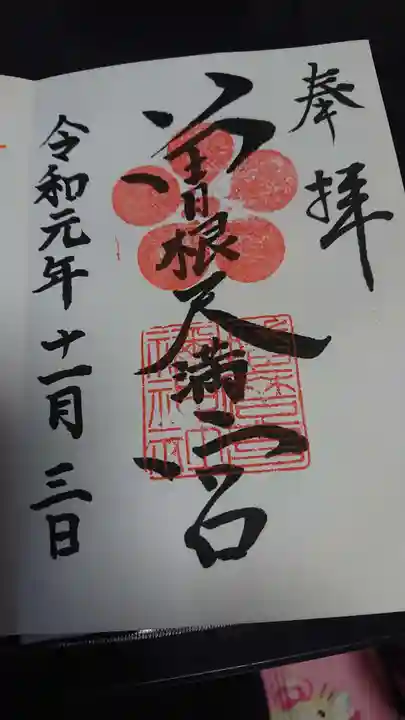 奉拝
曽根天満宮
令和元年十一月三日